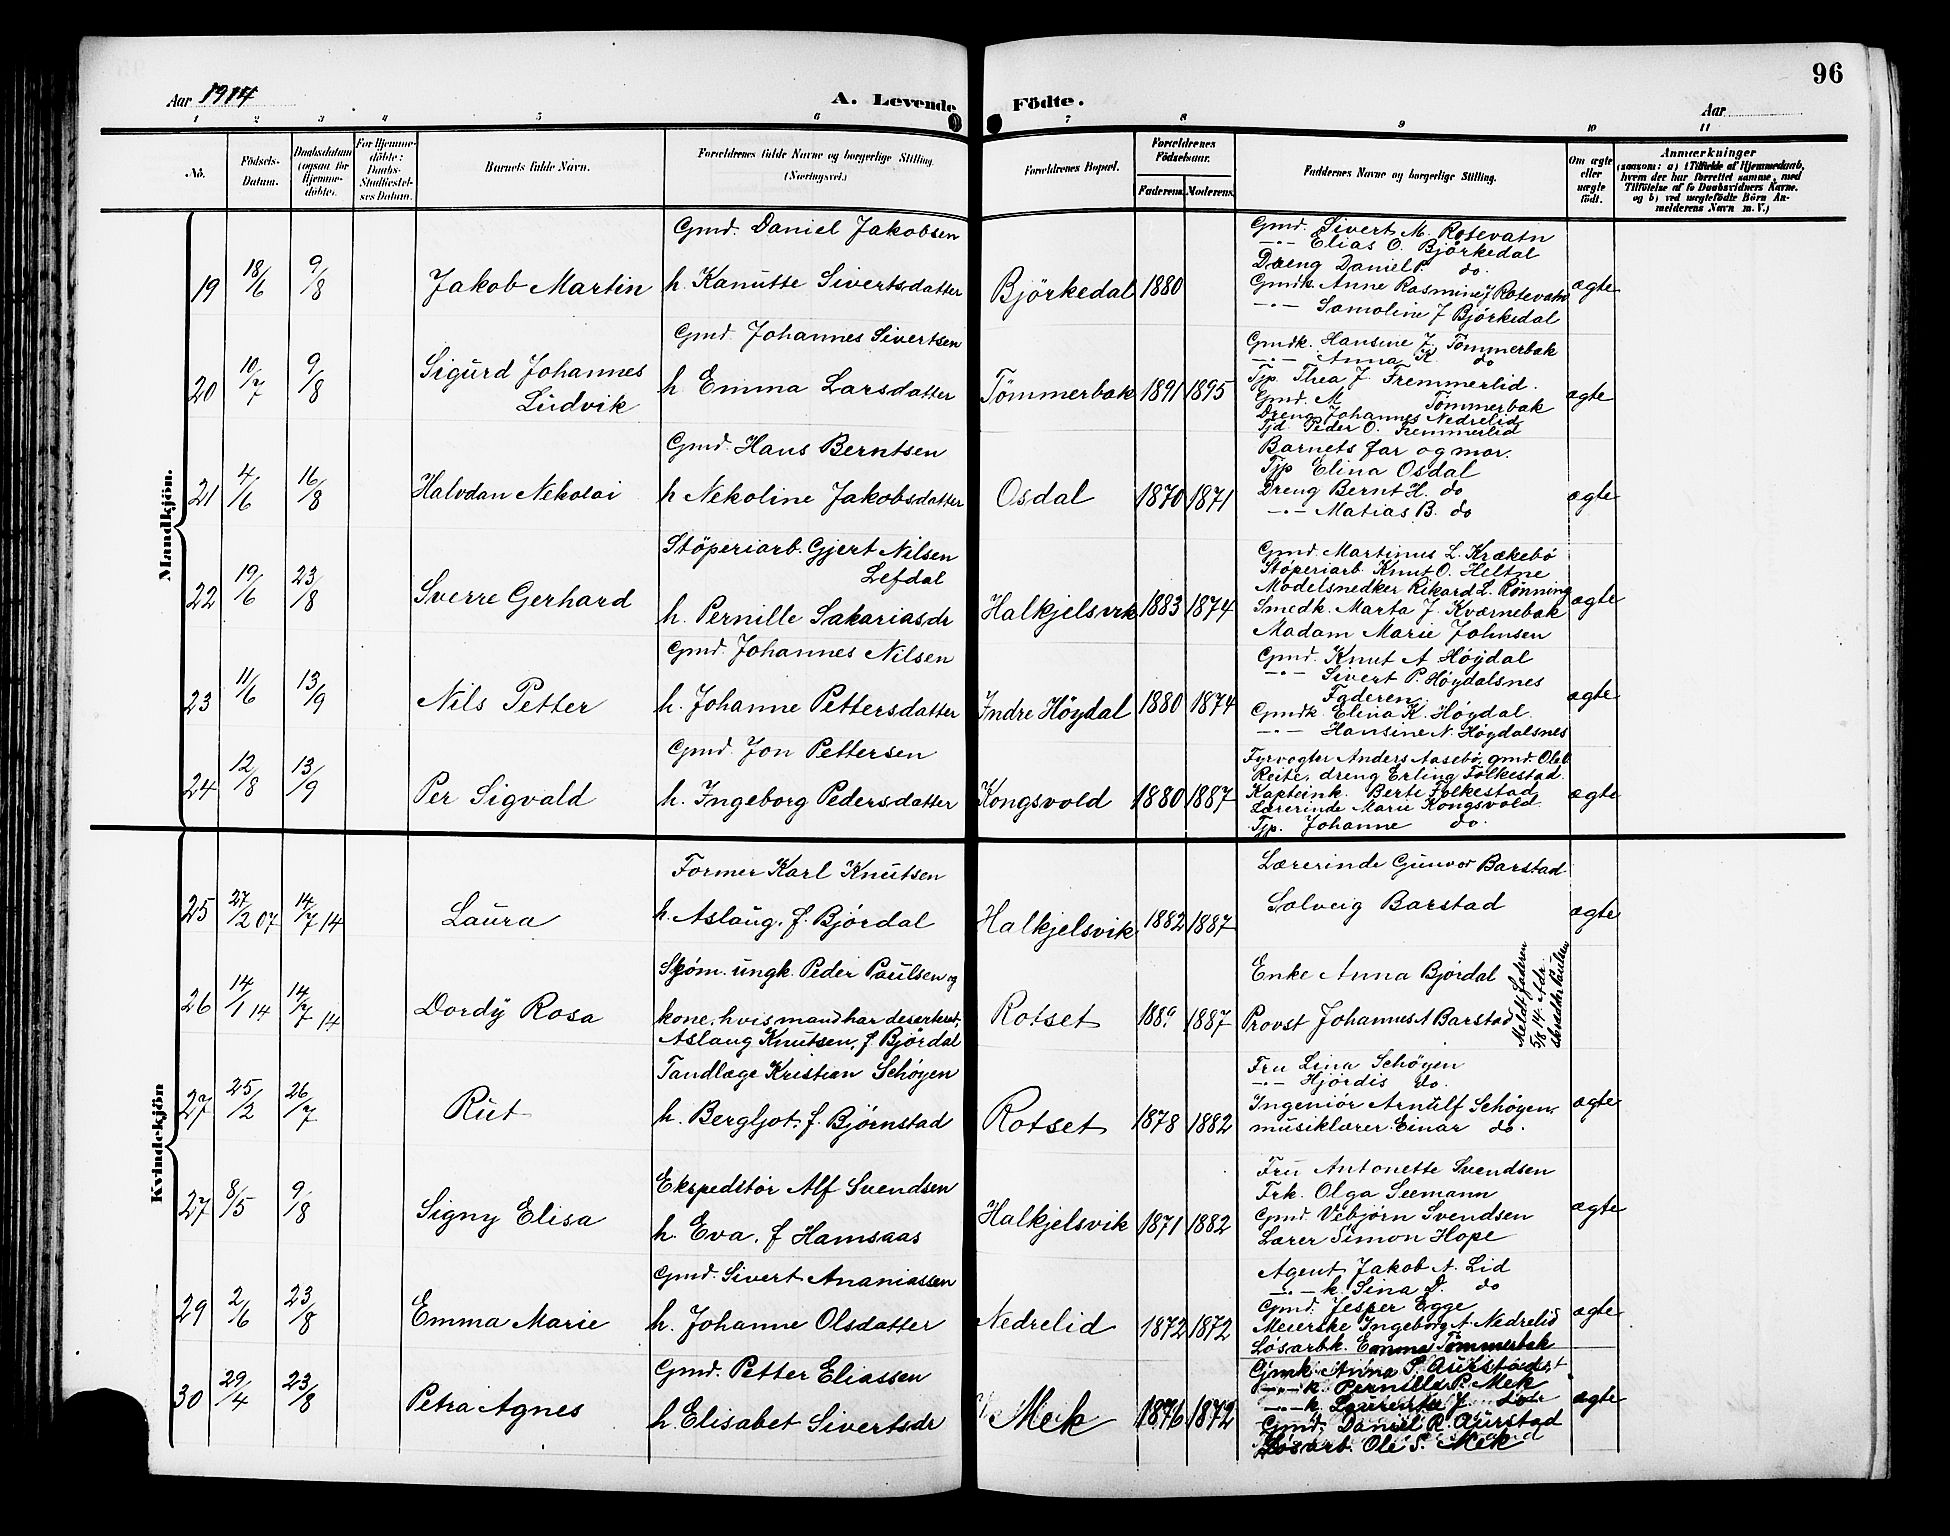 96
Aar 1914
A. Levende Födte.
Aar
1 2 3 4 5 6 7 8 9 10 11
No.
Födsels-Datum.
Daabsdatum (ogsaa for Hjemme-döbte.
For Hjemme-döbte: Daabs-Stadfæstel-ses Datum.
Barnets fulde Navn.
Forældrenes fulde Navne og borgerlige Stilling. (Næringsvei.)
Forældrenes Bopæl.
Forældrenes Födselsaar.
Faderens. Moderens.
Faddernes Navne og borgerlige Stilling.
Om ægte eller uægte født.
Anmærkninger
(saasom: a) i Tilfælde af Hjemmedaab, hvem der har forrettet samme, med Tilföielse af to Daabsvidners Navne. og b) ved uægtefödte Börn An-melderens Navn m. V.)
Mandkjön.
Gmd. Daniel Jakobsen
19 18/6 9/8 Jakob Martin h. Kanutte Sivertsdatter Björkedal 1880 ægte
Gmd. Sivert M. Rotevatn
-"- Elias O. Björkedal
Dreng Daniel P. do.
Gmdk. Anne Rasmine J Rotevatn
-"- Samoline J Björkedal
Gmd. Johannes Sivertsen
20 10/7 9/8 Sigurd Johannes Ludvik h Emma Larsdatter Tömmerbak 1891 1895 ægte
Gmdk. Hansine J. Tömmerbak
-"- Anna K. do
Tjp. Thea J. Fremmerlid.
Gmd. M Tömmerbak
Dreng Johannes Nedrelid
Tjd. Peder O. Fremmerlid
Gmd. Hans Berntsen
21 4/6 16/8 Halvdan Nekolai h Nekoline Jakobsdatter Osdal 1870 1871 ægte
Barnets far og mor.
Tjp Elina Osdal
Dreng Bernt H. do
-"- Matias B. do
Stöperiarb. Gjert Nilsen Lefdal
22 19/6 23/8 Sverre Gerhard h. Pernille Sakariasdr Halkjelsvik 1883 1874 ægte
Gmd. Martinus L. Krækebö
Stöperiarb. Knut O. Heltne
Modelsnedker Rikard L. Rönning
Smedk. Marta J. Kværnebak
Madam Marie Johnsen
Gmd. Johannes Nilsen
23 11/6 13/9 Nils Petter h. Johanne Pettersdatter Indre Höydal 1880 1874 ægte
Gmd. Knut A Höydal
-"- Sivert P. Höydalsnes
Faderen
Gmdk. Elina K. Höydal.
-"- Hansine N. Höydalsnes
Gmd. Jon Pettersen
24 12/8 13/9 Per Sigvald h. Ingeborg Pedersdatter Kongsvold 1880 1887 ægte
Fyrvogter Anders Aasebö, gmd. Ole O.
Reite, dreng Erling Folkestad.
Kapteink. Berte Folkestad
Lærerinde Marie Kongsvold.
Tjp. Johanne do.
Kvindekjön
Former Karl Knutsen
25 27/2 07 14/7 14 Laura h. Aslaug, f. Björdal Halkjelsvik 1882 1887 ægte
Lærerinde Gunvor Barstad
Solveig Barstad
Skjöm. ungk. Peder Paulsen og
26 14/1 14 14/7 14 Dordy Rosa kone, hvis mand har deserteret, Aslaug Knutsen, f. Björdal Rotset 1889 1887
Enke Anna Björdal
Provst Johannes A Barstad
Meldt faderen
5/8 14.
Tandlæge Kristian Schöyen
27 25/2 26/7 Rut h. Bergljot, f. Bjørnstad Rotset 1878 1882 ægte
Fru Lina Schöyen
-"- Hjördis do.
Ingeniör Arnulf Schöyen
musiklærer Einar do.
Ekspeditör Alf Svendsen
27 8/5 9/8 Signy Elisa h. Eva, f Hamsaas Halkjelsvik 1871 1882 ægte
Fru Antonette Svendsen
Frk. Olga Seemann
Gmd. Vebjørn Svendsen
Lærer Simon Hope
Gmd. Sivert Ananiassen
29 2/6 23/8 Emma Marie h. Johanne Olsdatter Nedrelid 1872 1872 ægte
Agent Jakob A. Lid
-"- k. Sina D. do
Gmd. Jesper Egge
Meierske Ingeborg A. Nedrelid
Lösarbk. Emma Tömmerbak
Gmd. Petter Eliassen
30 29/4 23/8 Petra Agnes h. Elisabet Sivertsdr Mek 1876 1872 ægte
Gmk. Anna P. Aurstad
-"- k. Pernille P. Mek
-"- k. Laurentse J.
Gmd. Daniel R. Aurstad
Lösarb. Ole S. Mek